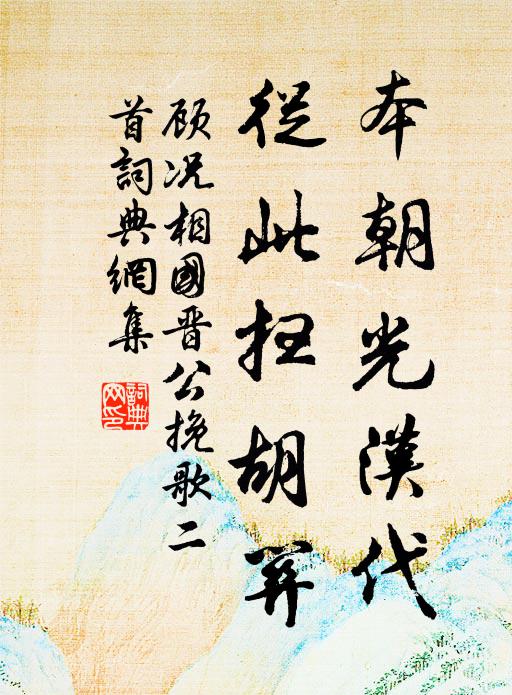 本朝光漢代
從此扫胡
顾况相國晋公挽歌二
首詞典網集
詞典
网印